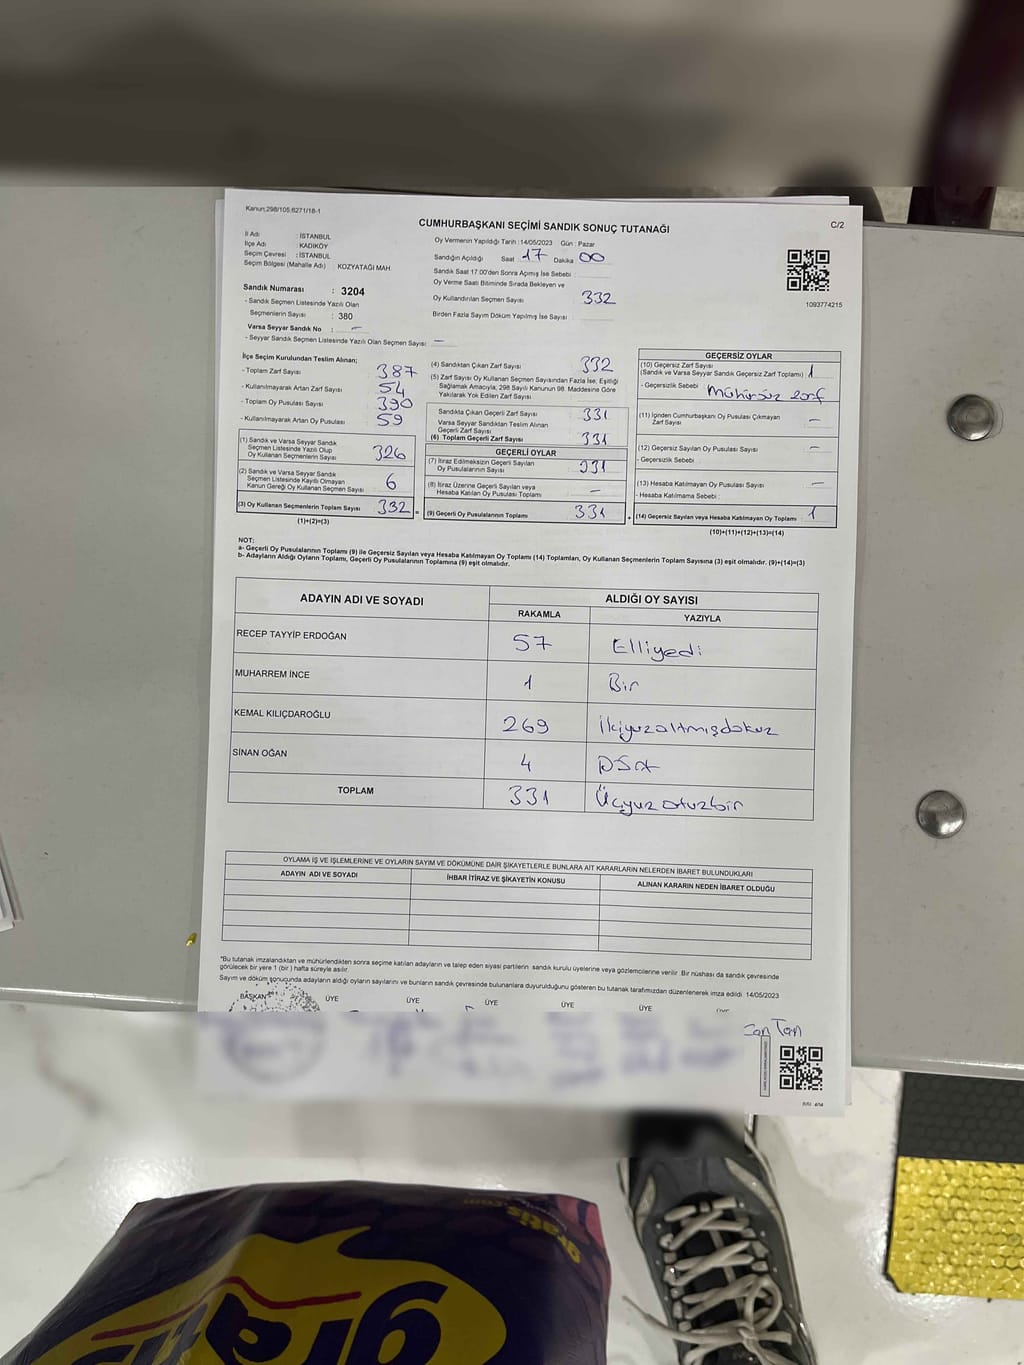 Kanun;298/105;6271/18-1
CUMHURBAŞKANI SEÇİMİ SANDIK SONUÇ TUTANAĞI
C/2
İl Adı : İSTANBUL
İlçe Adı : KADIKÖY
Seçim Çevresi : İSTANBUL
Seçim Bölgesi (Mahalle Adı) : KOZYATAĞI MAH
Sandık Numarası : 3204
- Sandık Seçmen Listesinde Yazılı Olan
Seçmenlerin Sayısı : 380
Varsa Seyyar Sandık No : -
- Seyyar Sandık Seçmen Listesinde Yazılı Olan Seçmen Sayısı : -
Oy Vermenin Yapıldığı Tarih :14/05/2023 Gün : Pazar
Sandığın Açıldığı Saat 17 Dakika 00
Sandık Saat 17.00'den Sonra Açılmış İse Sebebi :
Oy Verme Saati Bitiminde Sırada Bekleyen ve
Oy Kullandırılan Seçmen Sayısı 332
Birden Fazla Sayım Döküm Yapılmış İse Sayısı :
1093774215
İlçe Seçim Kurulundan Teslim Alınan;
- Toplam Zarf Sayısı 387
- Kullanılmayarak Artan Zarf Sayısı 54
- Toplam Oy Pusulası Sayısı 390
- Kullanılmayarak Artan Oy Pusulası 59
(1) Sandık ve Varsa Seyyar Sandık
Seçmen Listesinde Yazılı Olup
Oy Kullanan Seçmenlerin Sayısı 326
(2) Sandık ve Varsa Seyyar Sandık
Seçmen Listesinde Kayıtlı Olmayan
Kanun Gereği Oy Kullanan Seçmen Sayısı 6
(3) Oy Kullanan Seçmenlerin Toplam Sayısı 332 =
(1)+(2)=(3)
(4) Sandıktan Çıkan Zarf Sayısı 332
(5) Zarf Sayısı Oy Kullanan Seçmen Sayısından Fazla İse, Eşitliği
Sağlamak Amacıyla, 298 Sayılı Kanunun 98. Maddesine Göre
Yakılarak Yok Edilen Zarf Sayısı
Sandıkta Çıkan Geçerli Zarf Sayısı 331
Varsa Seyyar Sandıktan Teslim Alınan
Geçerli Zarf Sayısı
(6) Toplam Geçerli Zarf Sayısı 331
GEÇERLİ OYLAR
(7) İtiraz Edilmeksizin Geçerli Sayılan
Oy Pusulalarının Sayısı 331
(8) İtiraz Üzerine Geçerli Sayılan veya
Hesaba Katılan Oy Pusulası Toplamı -
(9) Geçerli Oy Pusulalarının Toplamı 331 +
GEÇERSİZ OYLAR
(10) Geçersiz Zarf Sayısı
(Sandık ve Varsa Seyyar Sandık Geçersiz Zarf Toplamı) 1
- Geçersizlik Sebebi : Mühürsüz zarf
(11) İçinden Cumhurbaşkanı Oy Pusulası Çıkmayan
Zarf Sayısı -
(12) Geçersiz Sayılan Oy Pusulası Sayısı -
- Geçersizlik Sebebi :
(13) Hesaba Katılmayan Oy Pusulası Sayısı -
- Hesaba Katılmama Sebebi :
(14) Geçersiz Sayılan veya Hesaba Katılmayan Oy Toplamı 1
(10)+(11)+(12)+(13)=(14)
NOT:
a- Geçerli Oy Pusulalarının Toplamı (9) ile Geçersiz Sayılan veya Hesaba Katılmayan Oy Toplamı (14) Toplamları, Oy Kullanan Seçmenlerin Toplam Sayısına (3) eşit olmalıdır. (9)+(14)=(3)
b- Adayların Aldığı Oyların Toplamı, Geçerli Oy Pusulalarının Toplamına (9) eşit olmalıdır.
ADAYIN ADI VE SOYADI
ALDIĞI OY SAYISI
RAKAMLA YAZIYLA
RECEP TAYYİP ERDOĞAN 57 Elliyedi
MUHARREM İNCE 1 Bir
KEMAL KILIÇDAROĞLU 269 İkiyuzaltmışdokuz
SİNAN OĞAN 4 Dört
TOPLAM 331 Üçyuzotuzbir
OYLAMA İŞ VE İŞLEMLERİNE VE OYLARIN SAYIM VE DÖKÜMÜNE DAİR ŞİKAYETLERLE BUNLARA AİT KARARLARIN NELERDEN İBARET BULUNDUKLARI
ADAYIN ADI VE SOYADI İHBAR İTİRAZ VE ŞİKAYETİN KONUSU ALINAN KARARIN NEDEN İBARET OLDUĞU
*Bu tutanak imzalandıktan ve mühürlendikten sonra seçime katılan adayların ve talep eden siyasi partilerin sandık kurulu üyelerine veya gözlemcilerine verilir. Bir nüshası da sandık çevresinde
görülecek bir yere 1 (bir ) hafta süreyle asılır.
Sayım ve döküm sonucunda adayların aldığı oyların sayılarını ve bunların sandık çevresinde bulunanlara duyurulduğunu gösteren bu tutanak tarafımızdan düzenlenerek imza edildi. 14/05/2023
BAŞKAN ÜYE ÜYE ÜYE ÜYE ÜYE ÜYE
Can Tan
gratis.com
gratis